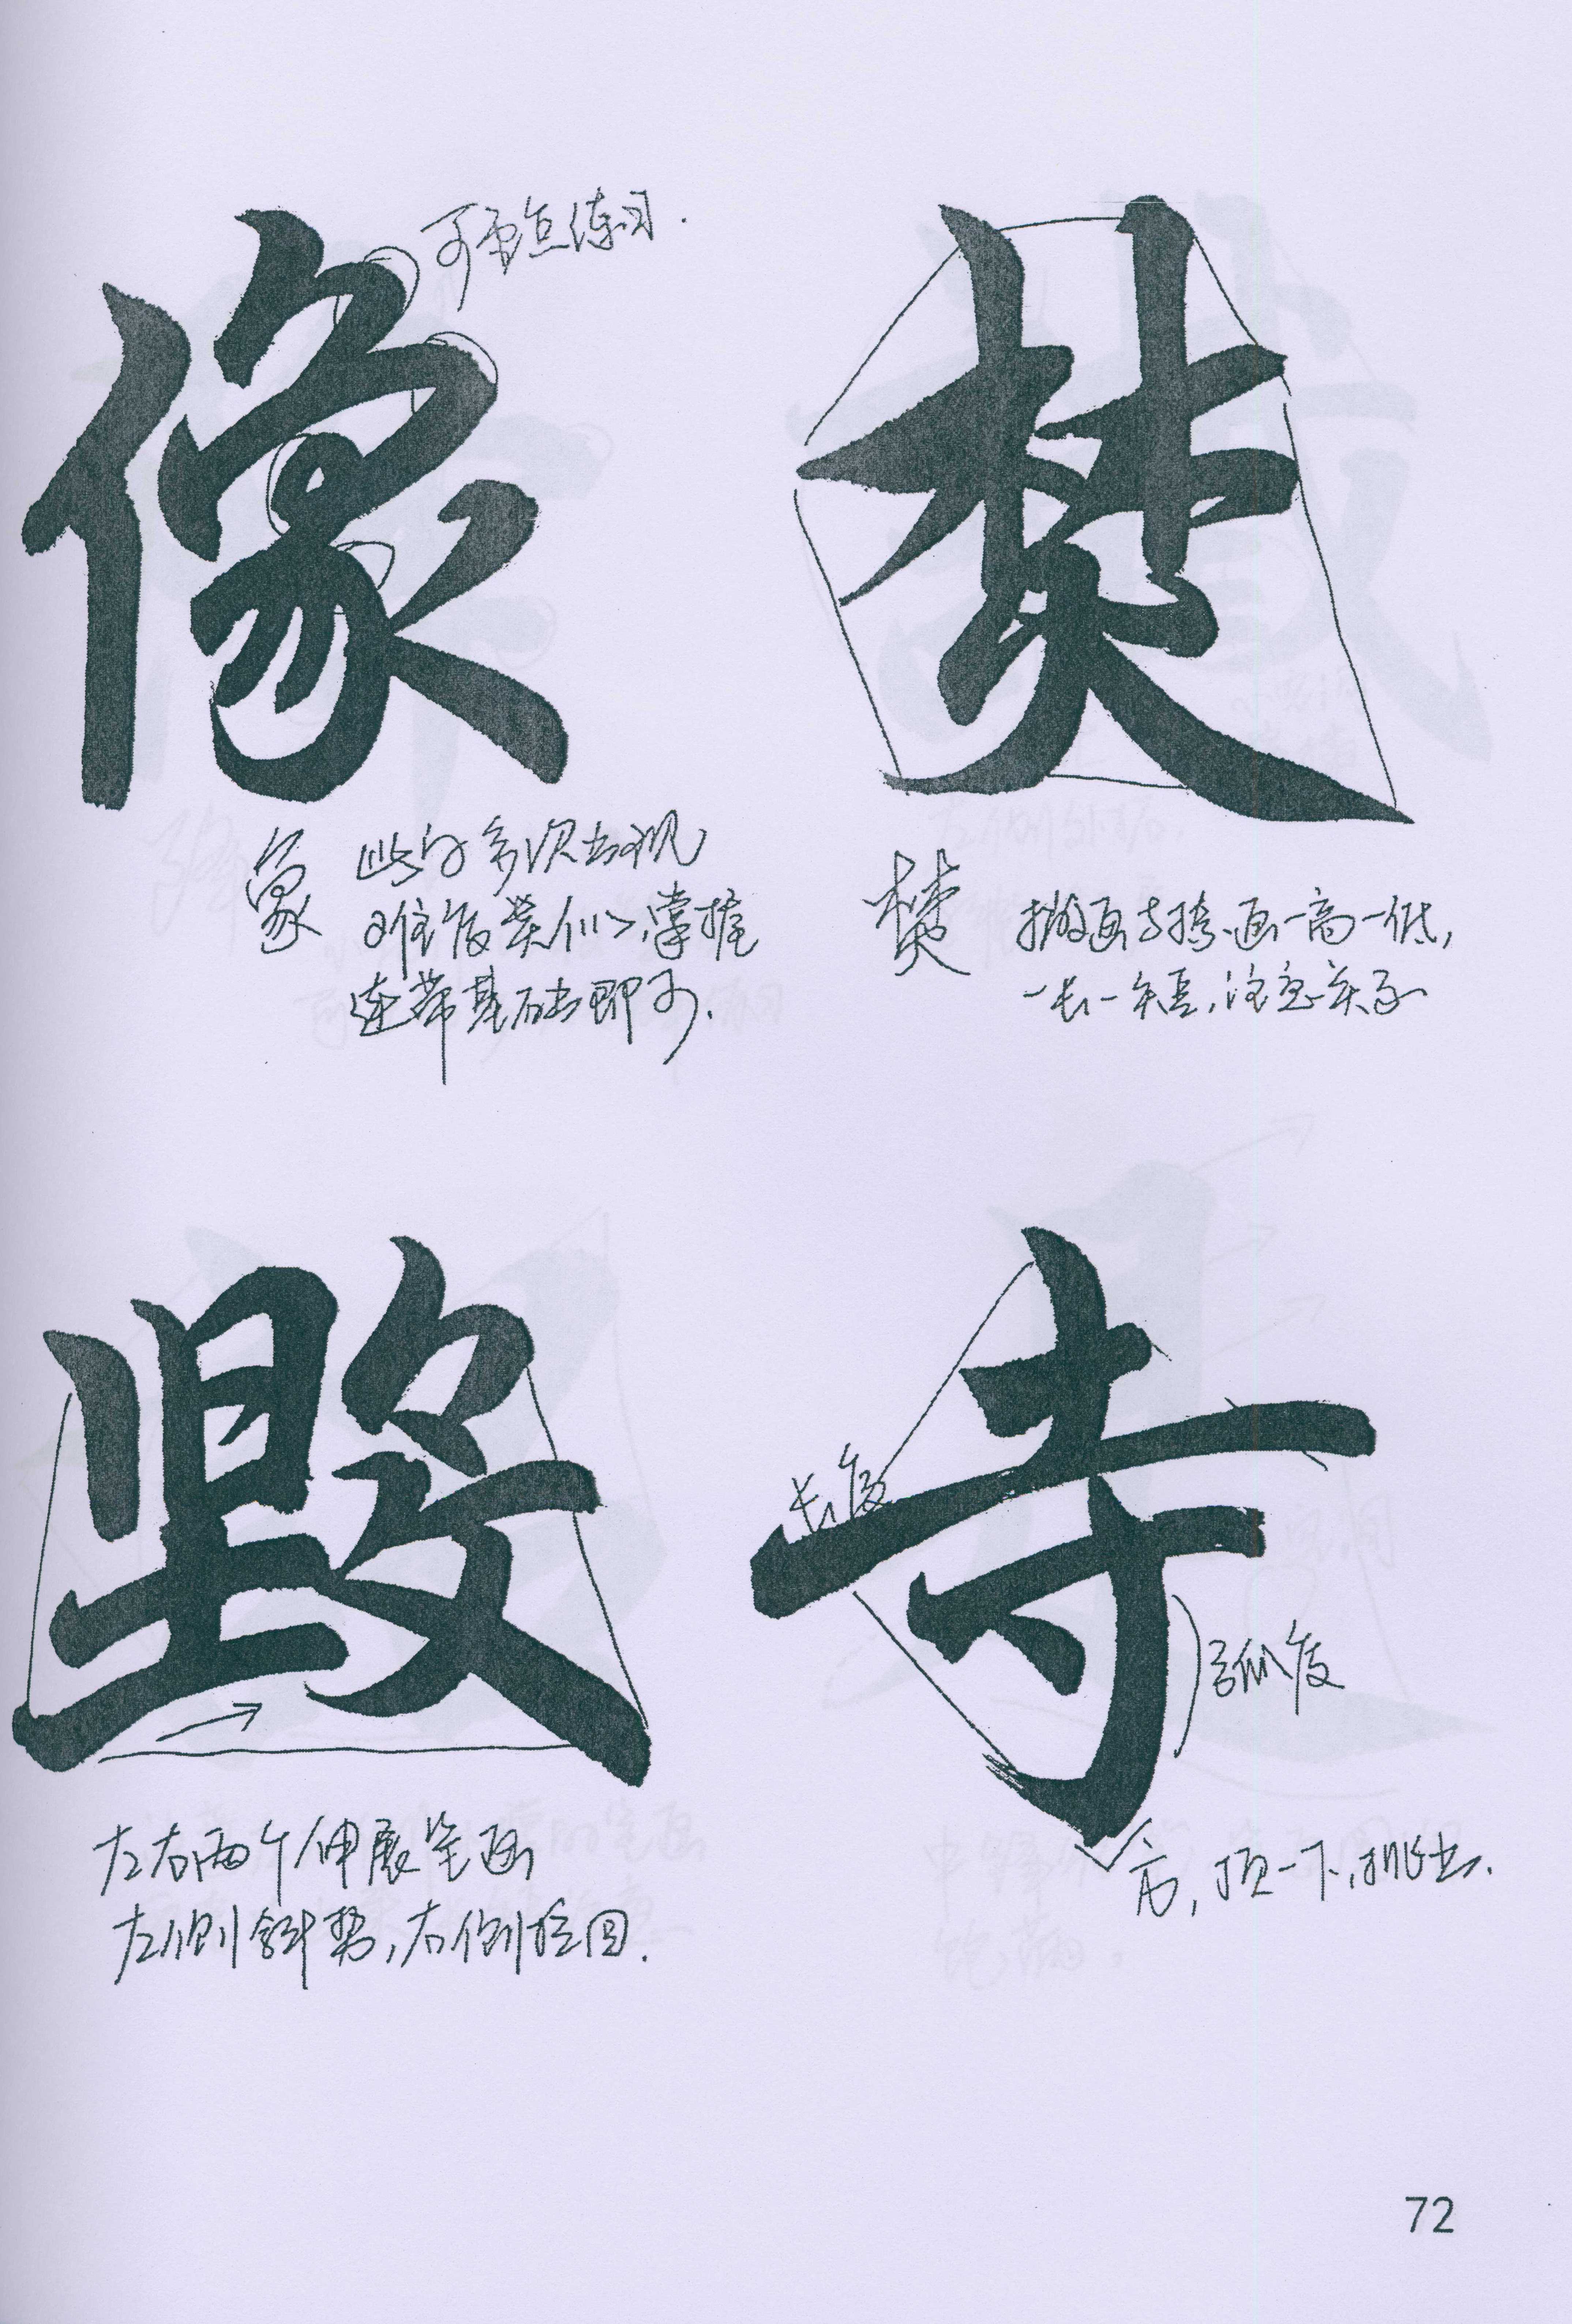 像
可重点练习.
象 此字多次出现
难度类似,掌握
连带基础即可.
焚
焚 撇画与捺画一高一低,
一长一短,注意关系
毁
左右两个伸展笔画
左侧斜势,右侧稳固.
寺
长度
弧度
方,顶一下,挑出.
72